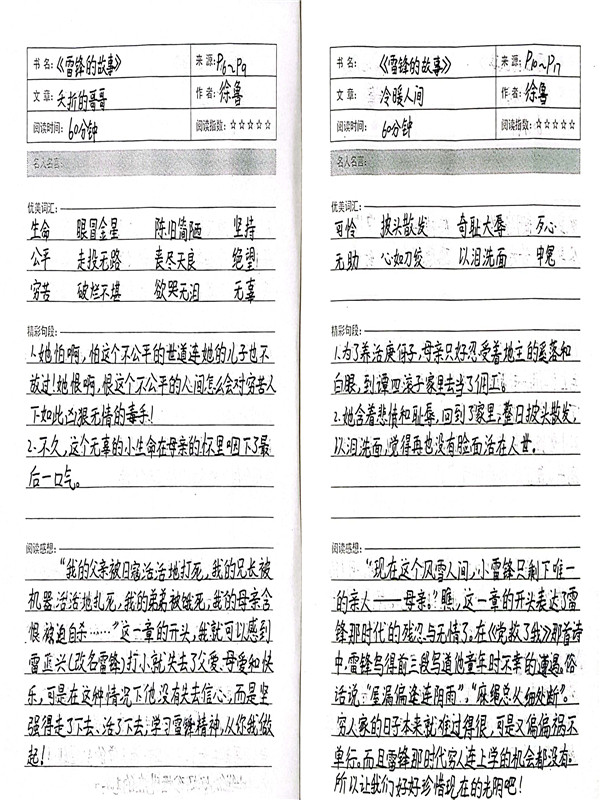 书 名：《雷锋的故事》
来 源：P6～P9
文 章：夭折的哥哥
作 者：徐鲁
阅读时间：60分钟
阅读指数：☆☆☆☆☆
名人名言：
优美词汇：
生命 眼冒金星 陈旧简陋 坚持
公平 走投无路 丧尽天良 绝望
穷苦 破烂不堪 欲哭无泪 无辜
精彩句段：
1.她怕啊，怕这个不公平的世道连她的儿子也不
放过！她恨啊，恨这个不公平的人间怎么会对穷苦人
下如此凶狠无情的毒手！
2.不久，这个无辜的小生命在母亲的怀里咽下了最
后一口气。
阅读感想：
“我的父亲被日寇活活地打死，我的兄长被
机器活活地轧死，我的弟弟被饿死，我的母亲含
恨被迫自杀……”这一章的开头，我就可以感到
雷正兴（改名雷锋）打小就失去了父爱、母爱和快
乐，可是在这种情况下他没有失去信心，而是坚
强得走了下去、活了下去，学习雷锋精神，从你我做
起！
书 名：《雷锋的故事》
来 源：P10～P17
文 章：冷暖人间
作 者：徐鲁
阅读时间：60分钟
阅读指数：☆☆☆☆☆
名人名言：
优美词汇：
可怜 披头散发 奇耻大辱 歹心
无助 心如刀绞 以泪洗面 中冤
精彩句段：
1.为了养活庚伢子，母亲只好忍受着地主的奚落和
白眼，到谭四滚子家里去当了佣工。
2.她含着悲愤和耻辱，回到了家里，整日披头散发，
以泪洗面，觉得再也没有脸面活在人世。
阅读感想：
“现在这个风雪人间，小雷锋只剩下唯一
的亲人——母亲。”瞧，这一章的开头表达了雷
锋那时代的残忍与无情了。在《党救了我》那首诗
中，雷锋写得前三段写道他童年时不幸的遭遇。俗
话说：“屋漏偏逢连阴雨”，“麻绳总从细处断”。
穷人家的日子本来就难过得很，可是又偏偏祸不
单行。而且雷锋那时代穷人连上学的机会都没有。
所以让我们好好珍惜现在的光阴吧！